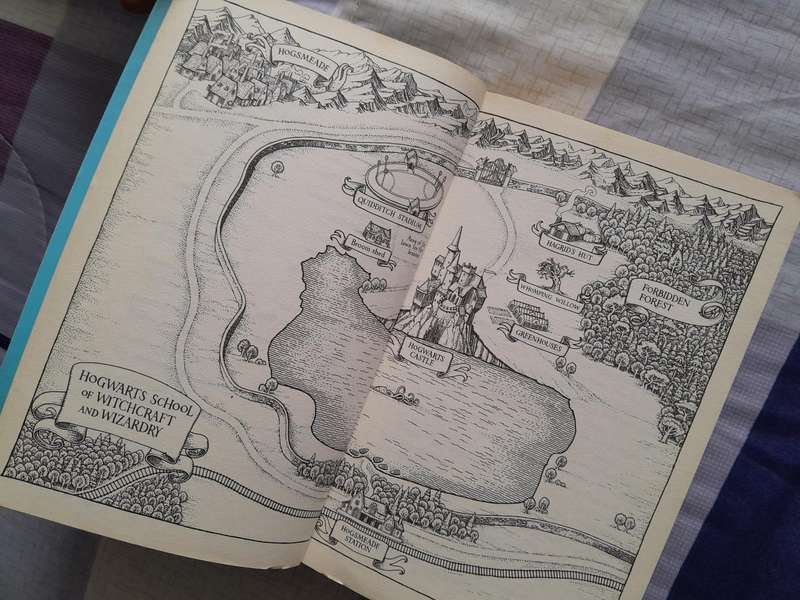 HOGSMEADE
QUIDDITCH STADIUM
Broom shed
HAGRID'S HUT
WHOMPING WILLOW
FORBIDDEN
FOREST
GREENHOUSES
HOGWARTS
CASTLE
HOGWARTS SCHOOL
OF WITCHCRAFT
AND WIZARDRY
HOGSMEADE
STATION